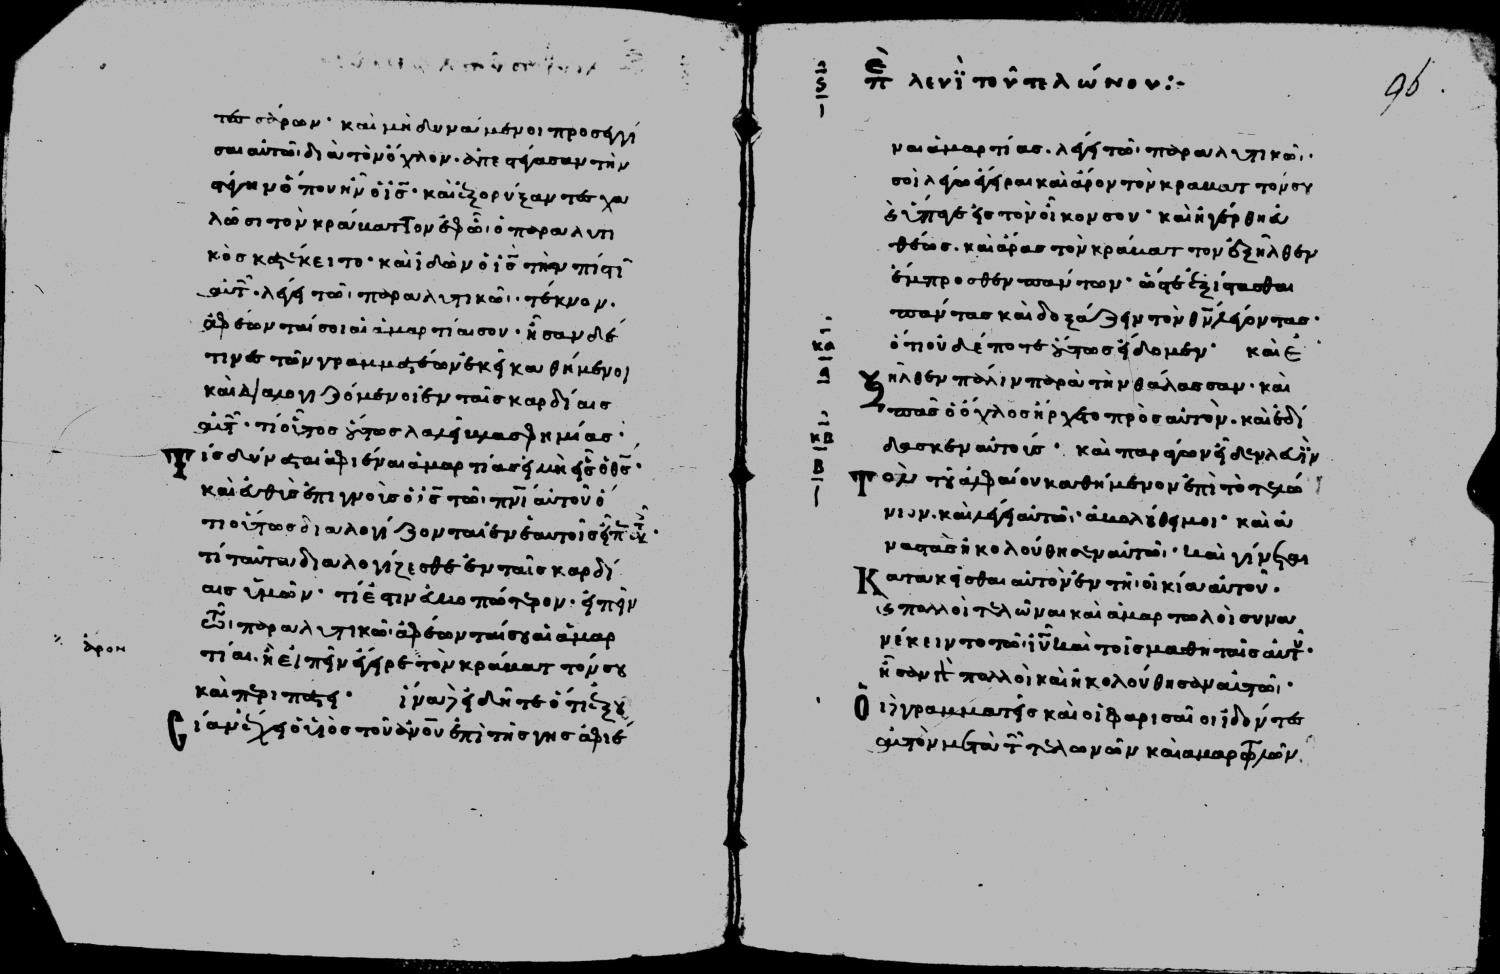 τεσσάρων· καὶ μὴ δυνάμενοι προσεγγί
σαι αὐτῶ· διὰ τὸν ὄχλον· ἀπεστέγασαν τὴν
στέγην ὅπου ἦν ὁ ις· καὶ ἐξορύξαντες χα
λῶσι τὸν κράματτον ἐφ ὧ· ὁ παραλυτι
κὸς κατέκειτο· καὶ ἰδὼν ὁ ις τὴν πίστι
αὐτ· λέγει τῶ· παραλυτικῶ· τέκνον·
ἀφέωνταί σοι αἱ ἁμαρτίαι σου· ἦσαν δέ
τινες τῶν γραμματέων ἐκεῖ καθήμενοι
καὶ διαλογιζόμενοι ἐν ταῖς καρδίαις
αὐτ· τί οὗτος οὕτως λαλεῖ βλασφημίας·
Τίς δύναται ἀφιέναι ἁμαρτίας εἰ μὴ εἷς ὁ θς·
καὶ εὐθὺς ἐπιγνοὺς ὁ ις τῶ· πνι αὐτοῦ ὁ
τι οὕτως διαλογίζονται ἐν ἑαυτοῖς εἶπ αὐτ·
τί ταῦτα διαλογίζεσθε ἐν ταῖς καρδί
αις ὑμῶν· τί ἐστιν εὐκοπώτερον· εἰπεῖν
τῶ· παραλυτικῶ· ἀφέωνταί σου αἱ ἁμαρ
τίαι· ἢ εἰπεῖν ἔγειρε τὸν κράματτόν σου
ἆρον
καὶ περιπάτει· ἵνα δὲ εἰδῆτε ὅτι ἐξου
Σίαν ἔχει ὁ υἱὸς τοῦ ανου ἐπὶ τῆς γῆς ἀφιέ
λευϊ τοῦ τελώνου:
96
ναι ἁμαρτίας· λέγει τῶ· παραλυτικῶ·
σοὶ λέγω ἔγειραι καὶ ἆρον τὸν κράματτόν σου
καὶ ὕπαγε εἰς τὸν οἶκον σου· καὶ ἠγέρθη εὐ
θέως· καὶ ἄρας τὸν κράματτον ἐξῆλθεν
ἔμπροσθεν πάντων· ὥστε ἐξίστασθαι
πάντας καὶ δοξάζειν τὸν θν λέγοντας·
ὅτι οὐδέποτε οὕτως εἴδομεν· καὶ ἐ
ξῆλθεν πάλιν παρὰ τὴν θάλασσαν· καὶ
πᾶς ὁ ὄχλος ἤρχετο πρὸς αὐτὸν· καὶ ἐδί
δασκεν αὐτούς· καὶ παράγων εἶδεν λευὶν
Τὸν τοῦ ἀλφαίου καθήμενον ἐπὶ τὸ τελώ
νιον· καὶ λέγει αὐτῶ· ἀκολούθει μοι· καὶ ἀ
ναστὰς ἠκολούθησεν αὐτῶ· καὶ γίνεται
Κατακεῖσθαι αὐτὸν ἐν τῆ· οἰκία αὐτοῦ·
καὶ πολλοὶ τελῶναι καὶ ἁμαρτωλοὶ συνα
νέκειντο τῶ· ιυ καὶ τοῖς μαθηταῖς αὐτ·
ἦσαν γὰρ πολλοὶ καὶ ἠκολούθησαν αὐτῶ·
Οἱ γραμματεῖς καὶ οἱ φαρισαῖοι ἰδόντες
αὐτὸν μετὰ τ τελωνῶν καὶ ἁμαρτωλῶν